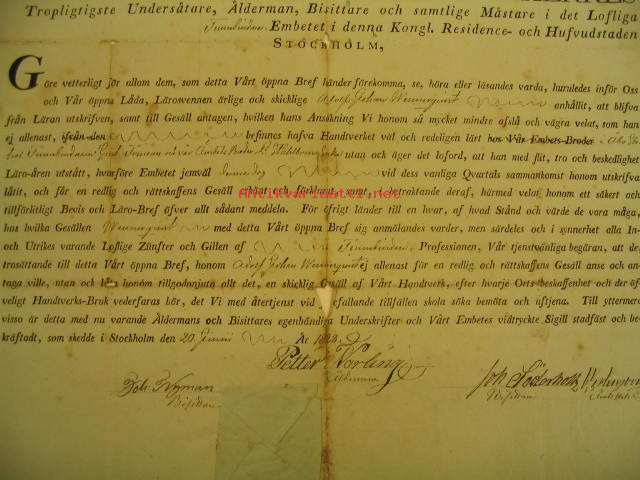 Tropligtigste Undersåtare, Ålderman, Bisittare och samtlige Mästare i det Lofliga
Embetet i denna Kongl. Residence- och Hufvudstaden
STOCKHOLM,
Göre vetterligt för allom dem, som detta Vårt öppna Bref händer förekomma, se, höra eller läsandes varda, huruledes inför Oss
och Vår öppna Låda, Lärosvennen ärlige och skicklige Adolf Johan Wennerquist anhållit, at blifva
från Läran utskrifven, samt til Gesäll antagen, hvilken hans Ansökning Vi honom så mycket mindre afslå och vägra velat, som han
ej allenast, ifrån den befinnes hafva Handtverket väl och redeligen lärt hos Vår Embets-Broder
utan ock äger det loford, att han med flit, tro och beskedlighet
Läro-åren utstått, hvarföre Embetet jemväl denne dag vid dess vanliga Qvartals sammankomst honom utskrifva
låtit, och för en redlig och rättskaffens Gesäll erkänt och förklarat, samt, i betraktande deraf, härmed velat honom ett säkert och
tillförlitligt Bevis och Läro-Bref öfver allt sådant meddela. För öfrigt länder till en hvar, af hvad Stånd och värde de vara måga,
hos hvilka Gesällen Wennerquist med detta Vårt öppna Bref sig anmälandes varder, men särdeles och i synnerhet alla In-
och Utrikes varande Loflige Zünfter och Gillen af Professionen, Vår tjenstvänliga begäran, att de,
trosättande till detta Vårt öppna Bref, honom Adolf Johan Wennerquist ej allenast för en redlig och rättskaffens Gesäll anse och an-
taga ville, utan ock låta honom tillgodonjuta allt det, en skicklig Gesäll af Vårt Handtverk, efter hvarje Orts beskaffenhet och der öf-
veligt Handtverks-Bruk vederfaras bör, det Vi med återtjenst vid förefallande tillfällen skola söka bemöta och aftjena. Till yttermera
visso är detta med nu varande Åldermans och Bisittares egenhändiga Underskrifter och Vårt Embetes vidtryckte Sigill stadfäst och be-
kräftadt, som skedde i Stockholm den 20 År 1828.
Petter Norling
Ålderman
Joh. Nyman
Bisittare
Joh Söderholm
Bisittare
antikvariaatti.net